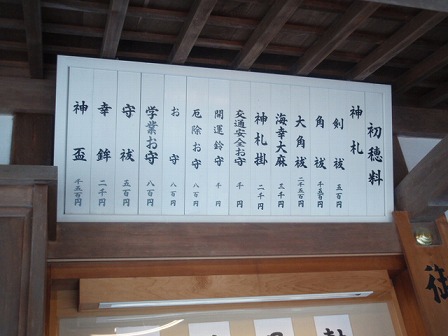 初穂料
神札
剣祓 五百円
角祓 千五百円
大角祓 二千五百円
海幸大麻 三千円
神札掛 二千円
交通安全お守 千円
開運鈴守 千円
厄除お守 八百円
お守 八百円
学業お守 八百円
守祓 五百円
幸鉾 二千円
神盃 千五百円
御